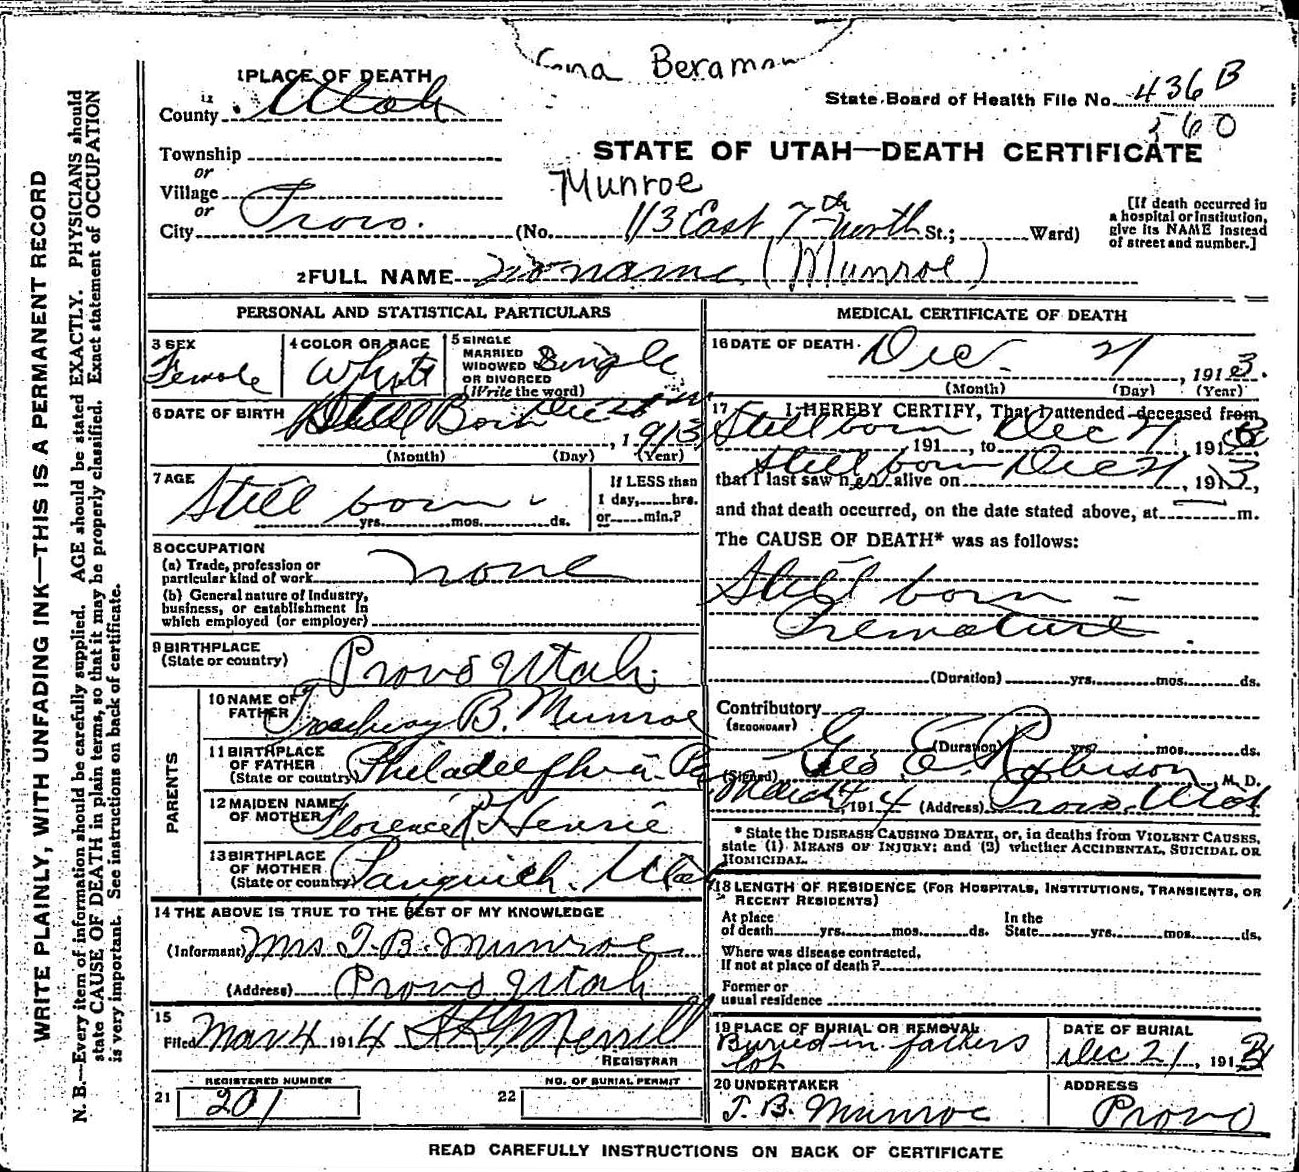 Bergman
1 PLACE OF DEATH
12
County Utah
State Board of Health File No. 436 B
560
Township
or
Village
or
City Provo.
STATE OF UTAH—DEATH CERTIFICATE
Munroe
(No. 113 East 7th North St.; Ward)
[If death occurred in
a hospital or institution,
give its NAME instead
of street and number.]
2 FULL NAME no name (Munroe)
PERSONAL AND STATISTICAL PARTICULARS
3 SEX
Female
4 COLOR OR RACE
White
5 SINGLE
MARRIED
WIDOWED
OR DIVORCED
(Write the word)
Single
6 DATE OF BIRTH
Still Born Dec 21st
, 1913
(Month) (Day) (Year)
7 AGE
Still born
yrs. mos. ds.
If LESS than
1 day, hrs.
or min.?
8 OCCUPATION
(a) Trade, profession or
particular kind of work none
(b) General nature of Industry,
business, or establishment in
which employed (or employer)
9 BIRTHPLACE
(State or country) Provo Utah.
PARENTS
10 NAME OF
FATHER B. Munroe
11 BIRTHPLACE
OF FATHER
(State or country) Philadelphia Pa
12 MAIDEN NAME
OF MOTHER Florence Henrie
13 BIRTHPLACE
OF MOTHER
(State or country) Panguich. Utah
14 THE ABOVE IS TRUE TO THE BEST OF MY KNOWLEDGE
(Informant) Mrs T. B. Munroe
(Address) Provo Utah
15
Filed Mar 4 1914 Merrill
REGISTRAR
21
REGISTERED NUMBER
201
22
NO. OF BURIAL PERMIT
MEDICAL CERTIFICATE OF DEATH
16 DATE OF DEATH
Dec 21, 1913.
(Month) (Day) (Year)
17 I HEREBY CERTIFY, That I attended deceased from
Still born 191 , to Dec 21, 1913
Still born Dec 21
that I last saw her alive on , 1913,
and that death occurred, on the date stated above, at m.
The CAUSE OF DEATH* was as follows:
Still born -
Premature
(Duration) yrs. mos. ds.
Contributory
(SECONDARY)
(Duration) yrs. mos. ds.
(Signed) Geo E. Robison, M. D.
March 4, 1914 (Address) Provo Utah
* State the DISEASE CAUSING DEATH, or, in deaths from VIOLENT CAUSES,
state (1) MEANS OF INJURY; and (2) whether ACCIDENTAL, SUICIDAL OR
HOMICIDAL.
18 LENGTH OF RESIDENCE (FOR HOSPITALS, INSTITUTIONS, TRANSIENTS, OR
RECENT RESIDENTS)
At place
of death yrs. mos. ds.
In the
State yrs. mos. ds.
Where was disease contracted,
If not at place of death?
Former or
usual residence
19 PLACE OF BURIAL OR REMOVAL
Buried in fathers
lot
DATE OF BURIAL
Dec 21, 1913
20 UNDERTAKER
T. B. Munroe
ADDRESS
Provo
READ CAREFULLY INSTRUCTIONS ON BACK OF CERTIFICATE
WRITE PLAINLY, WITH UNFADING INK—THIS IS A PERMANENT RECORD
N. B.—Every item of information should be carefully supplied. AGE should be stated EXACTLY. PHYSICIANS should
state CAUSE OF DEATH in plain terms, so that it may be properly classified. Exact statement of OCCUPATION
is very important. See instructions on back of certificate.